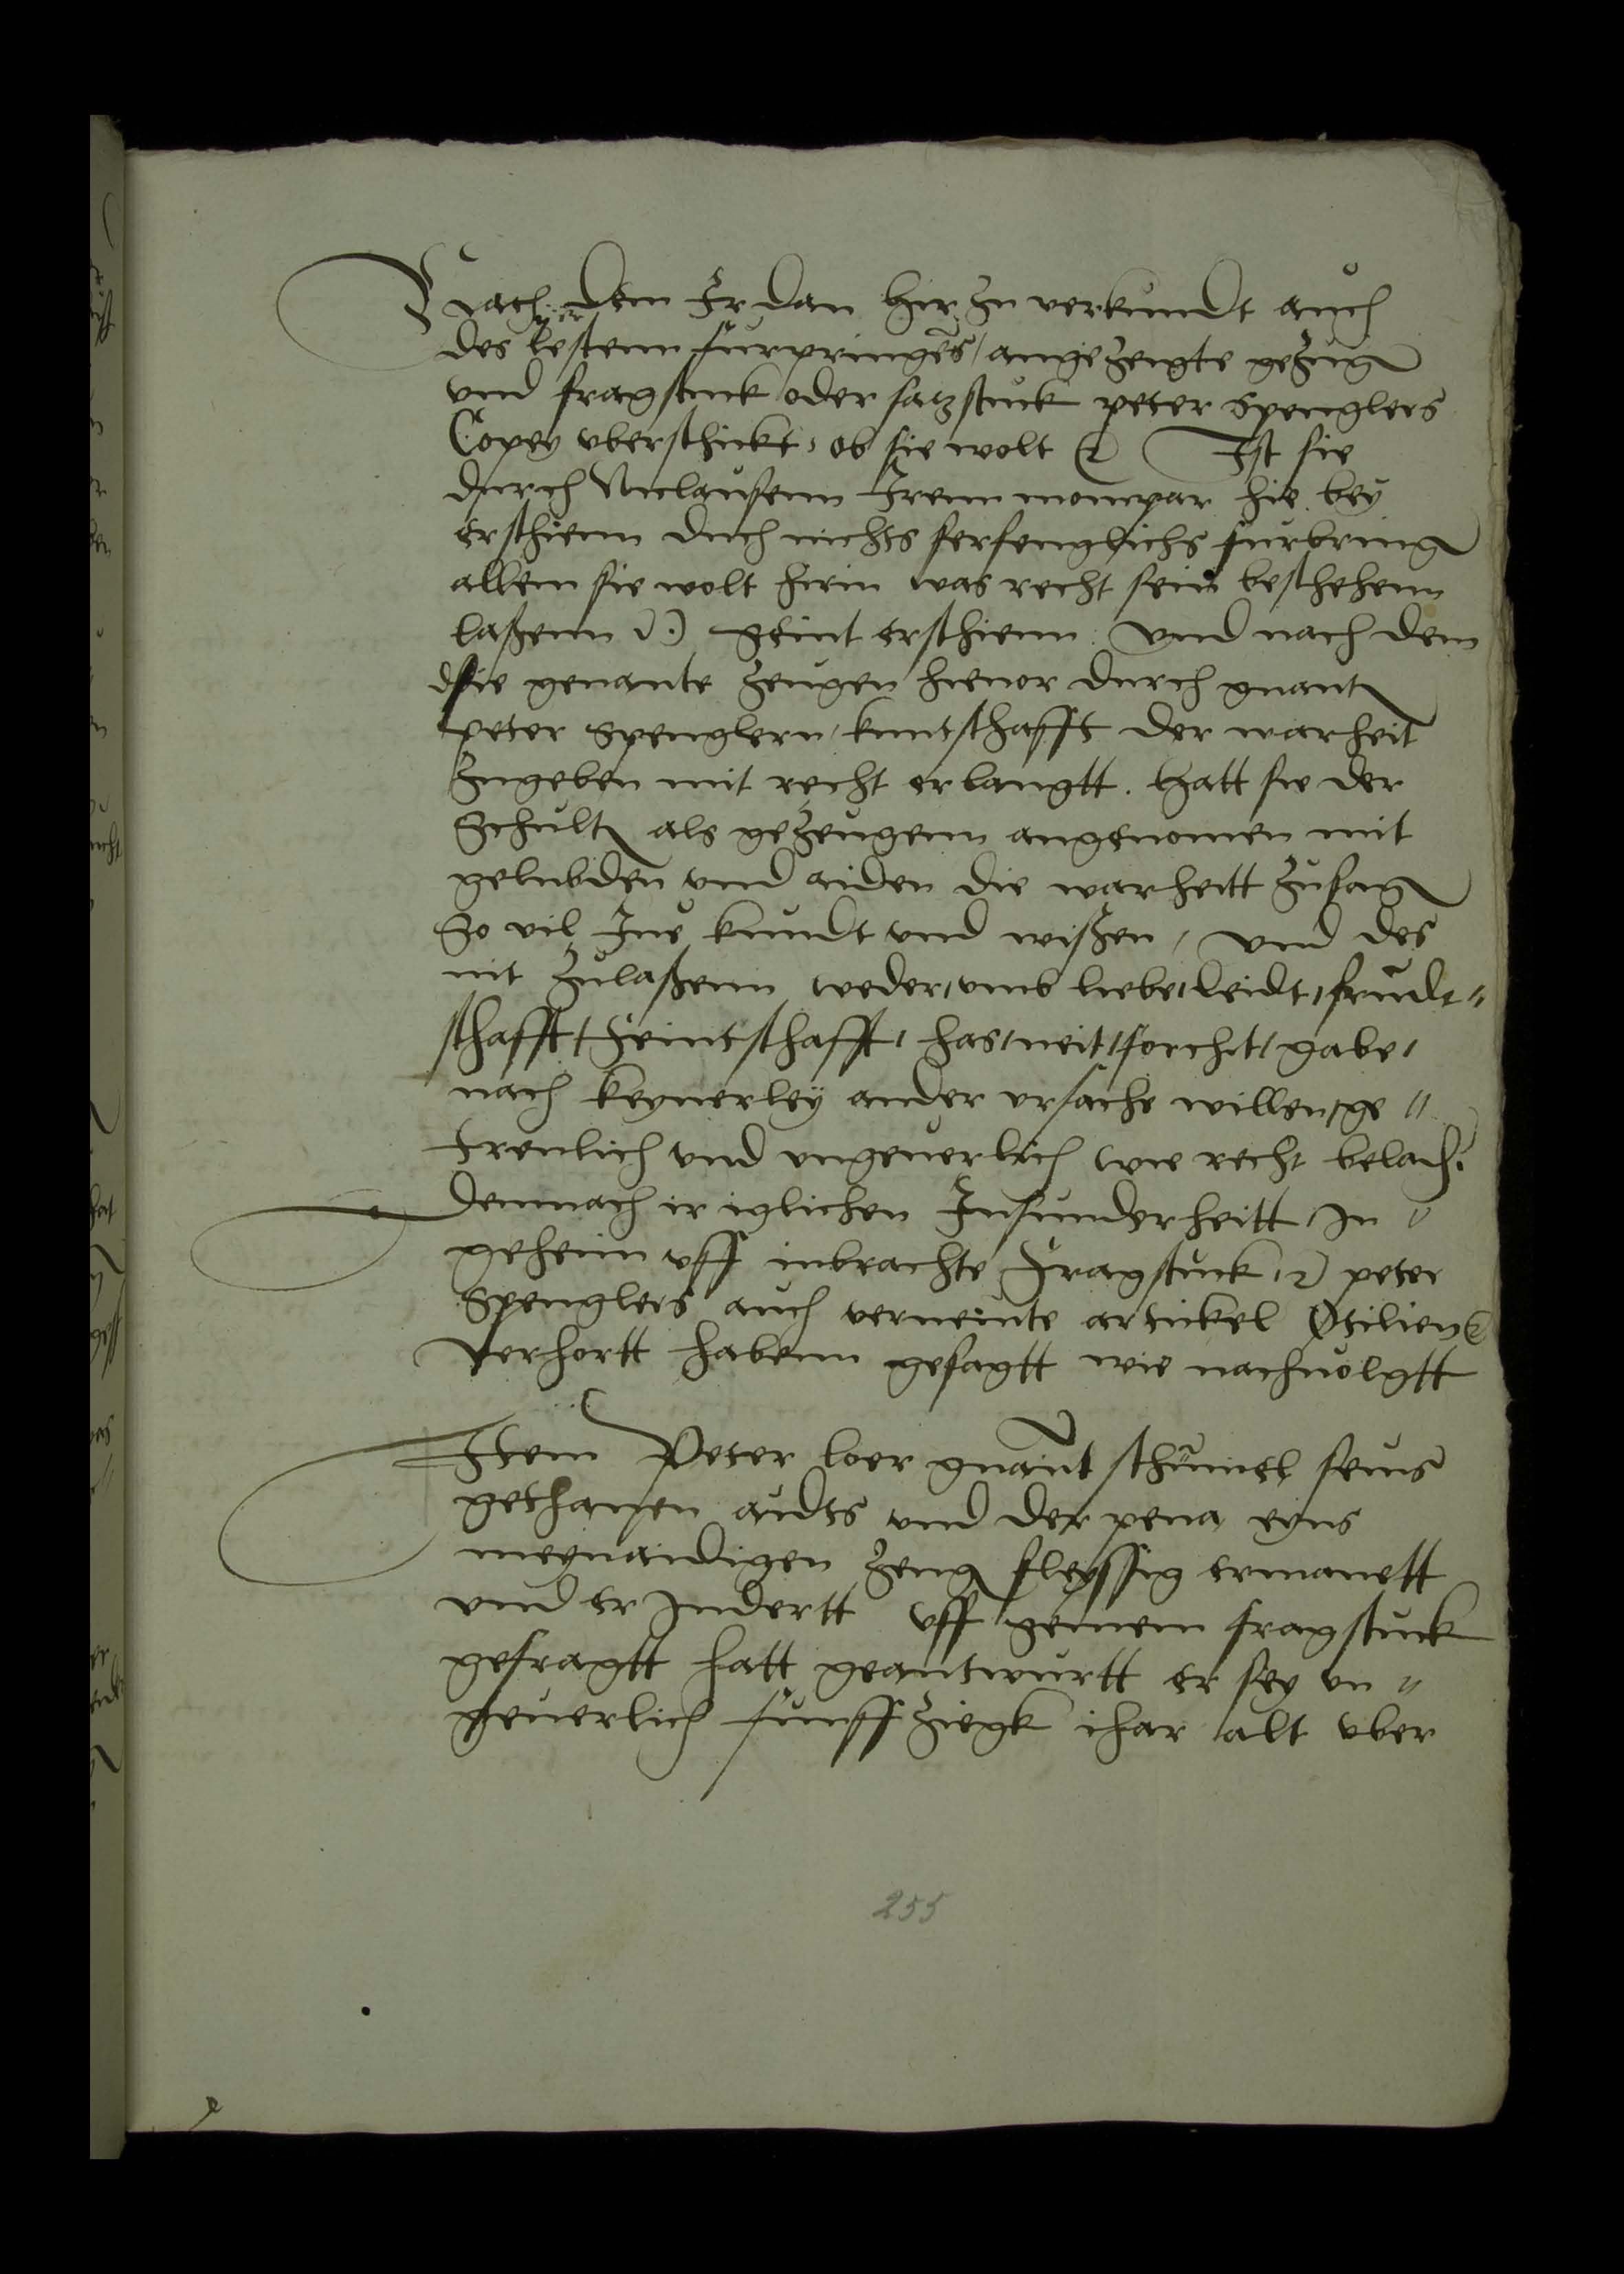 Nach dem Ir dan hir zu verkundt auch
des lestenn furpringes / angezeugte gezug
vnd fragstuck oder satzstuck peter spenglers
Copey vberschickt, ob sie wolt Ist sie
durch Niclausenn Irenn mompar hie bey
erschienn duch nichts ferfenglichs furbring
allein sie wolt hirin was recht sein beschehenn
laßenn seint erschienn. Vnd nach dem
die genante zeugen hieuor durch gnant
peter spenglern / kuntschafft der warheit
zugeben mit recht erlangtt. hatt sie der
Schult als gezeugenn angenomen mit
gelubden vnd aiden die warheitt zusag
So vil Ine kundt vnd wißen, vnd des
nit zulaßenn weder / vmb liebe / leidt / frudt"
schafft / feintschafft / has / neit / forcht / gabe /
nach keynerley ander vrsache willen / ge"
trenlich vnd vngeuerlich wie recht belach.
demnach ir iglichen Insunderheitt In"
geheim vff inbrachte fragstuck peter
Spenglers auch verneinte artickel Otilien
Verhortt habenn gesagtt wie nachuolgtt
Item Peter loer gnant schumel seins
gethanen aidts vnd der pena eyns
meynaidigen zeug fleyssig ermanett
vnd er Indertt vff gemein fragstuck
gefragtt hatt geantwurtt er sey vn"
geuerlich funffziegk ihar alt vber
255